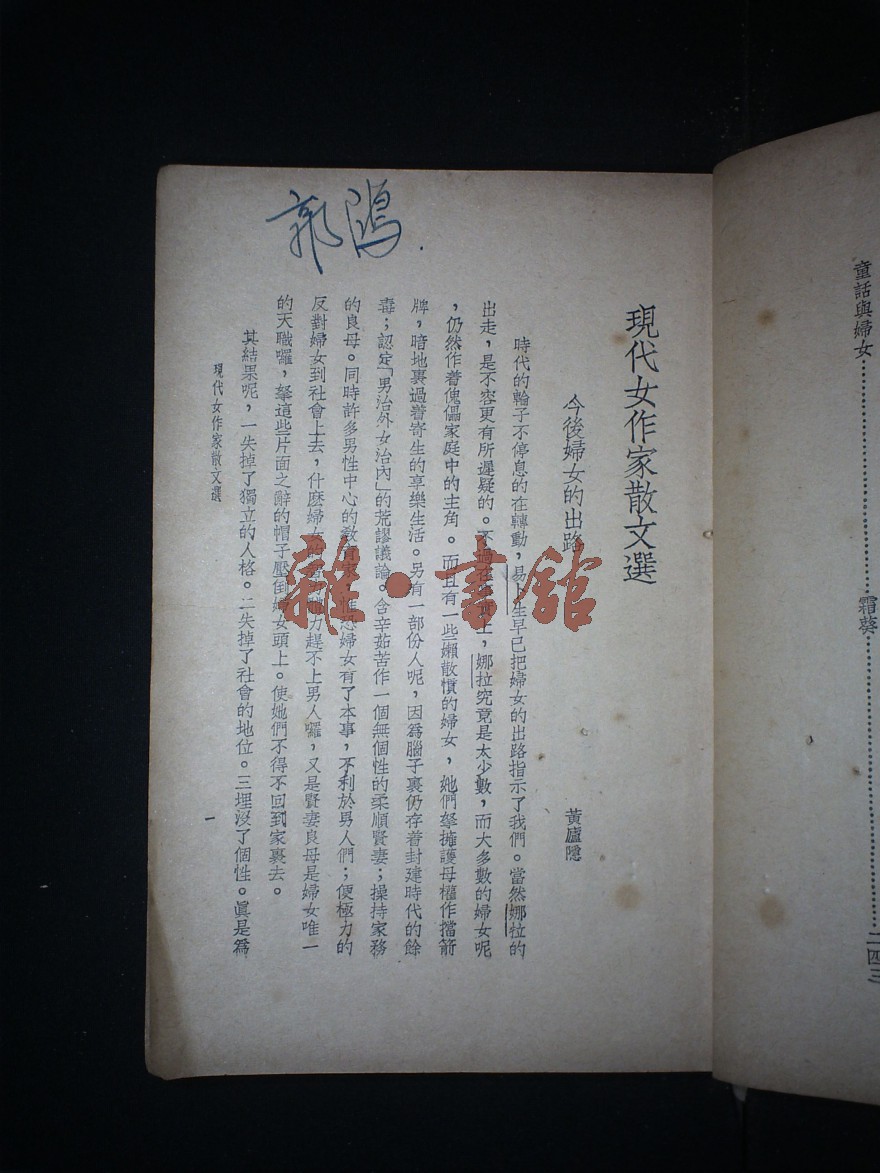 童話與婦女……………………霜葵……………………二四三
現代女作家散文選
今後婦女的出路
黃廬隱
時代的輪子不停息的在轉動，易卜生早已把婦女的出路指示了我們。當然娜拉的
出走，是不容更有所遲疑的。不過在事實上，娜拉究竟是太少數，而大多數的婦女呢
，仍然作着傀儡家庭中的主角。而且有一些懶散慣的婦女，她們拏擁護母權作擋箭
牌，暗地裏過着寄生的享樂生活。另有一部份人呢，因爲腦子裏仍存着封建時代的餘
毒；認定「男治外女治內」的荒謬議論。含辛茹苦作一個無個性的柔順賢妻；操持家務
的良母。同時許多男性中心的教育家，惟恐婦女有了本事，不利於男人們；便極力的
反對婦女到社會上去，什麽婦女的體力趕不上男人囉，又是賢妻良母是婦女唯一
的天職囉，拏這些片面之辭的帽子壓到婦女頭上。使她們不得不回到家裏去。
其結果呢，一失掉了獨立的人格。二失掉了社會的地位。三埋沒了個性。眞是爲
現代女作家散文選
一
雜·書館